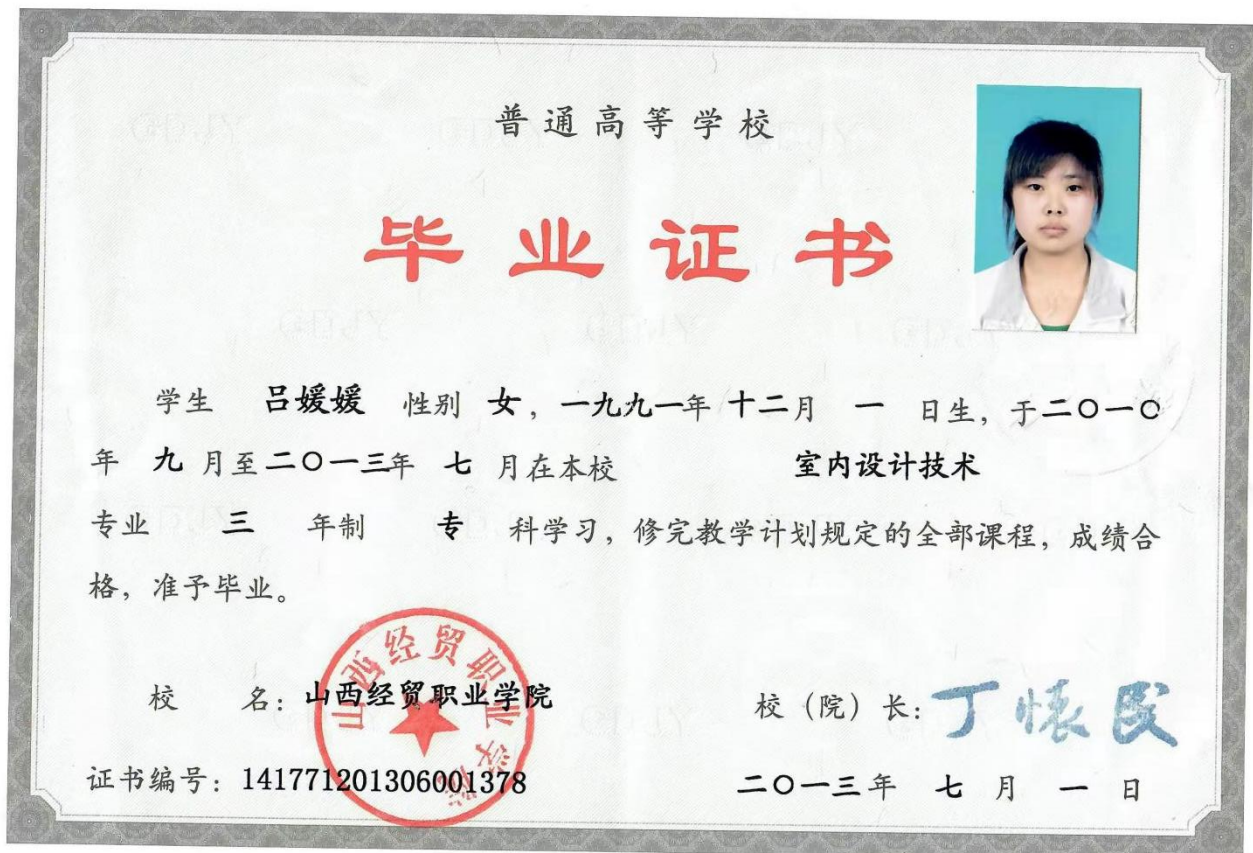 普通高等学校
毕业证书
学生 吕媛媛 性别 女，一九九一年 十二月 一 日生，于二〇一〇
年 九 月至二〇一三年 七 月在本校 室内设计技术
专业 三 年制 专 科学习，修完教学计划规定的全部课程，成绩合
格，准予毕业。
山西经贸职业学院
校 名：山西经贸职业学院
校（院）长：丁怀民
证书编号：141771201306001378
二〇一三年 七 月 一 日